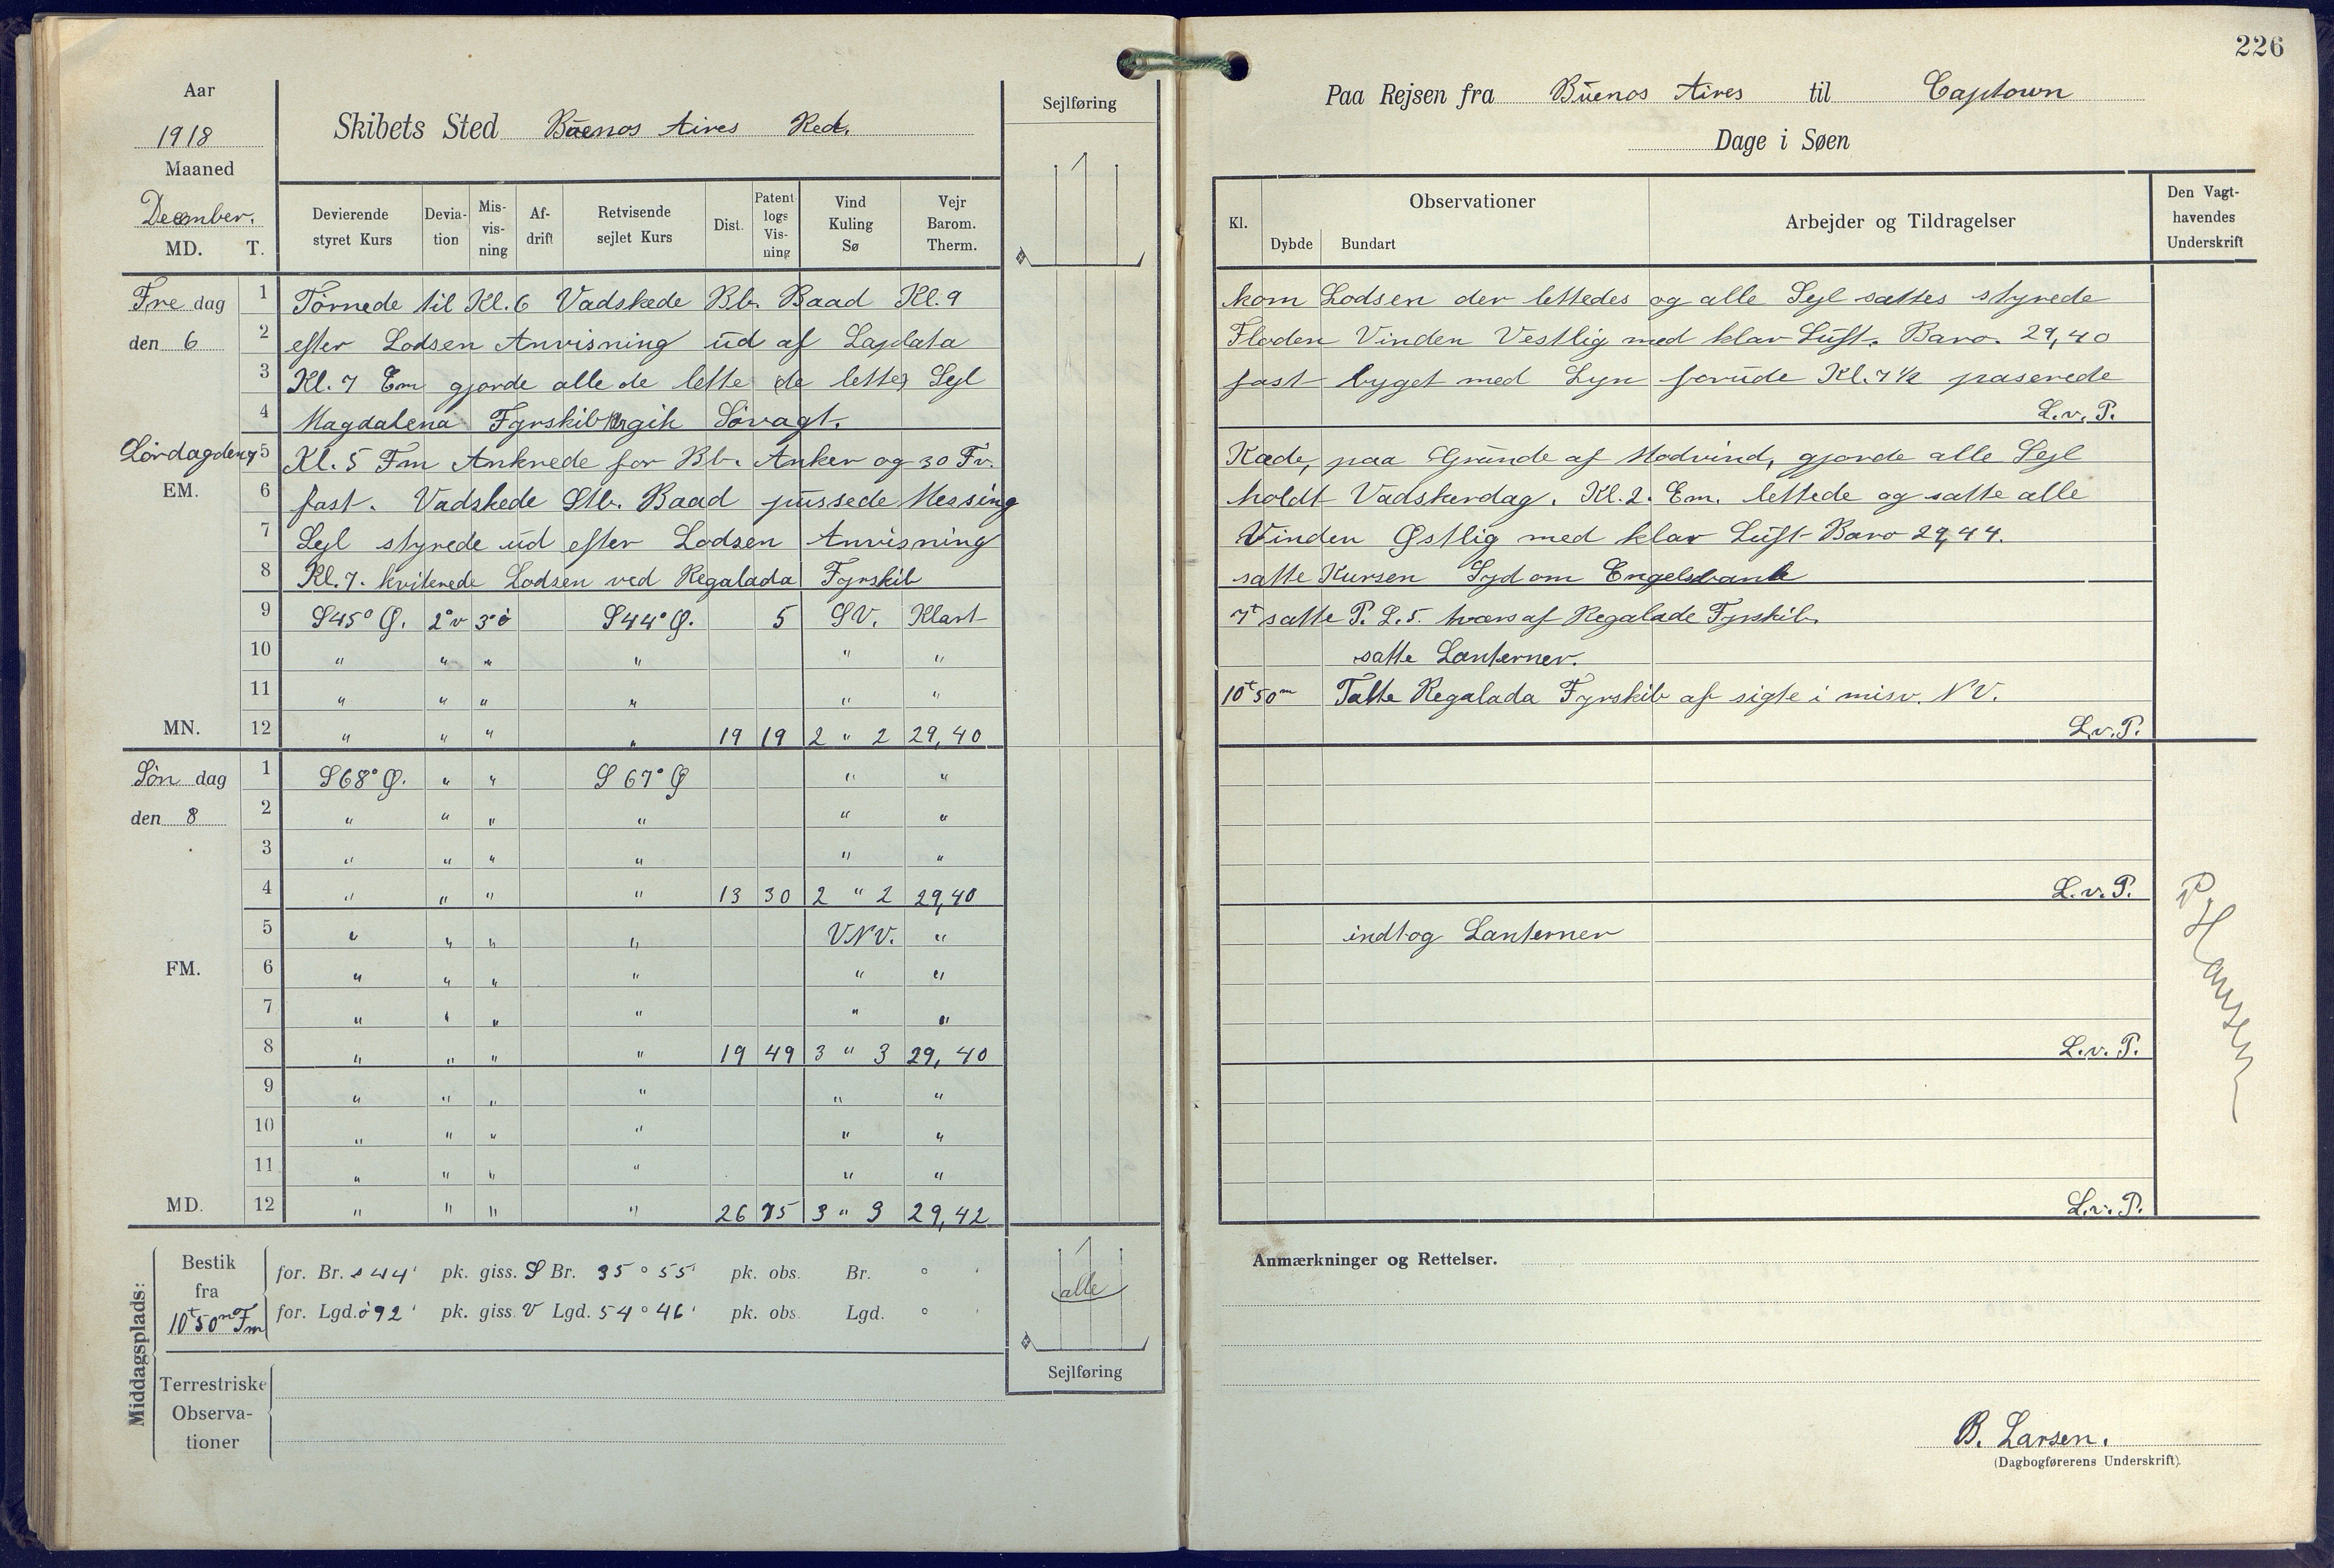 226
Aar
1918
Maaned
December.
MD. T.
Skibets Sted Buenos Aires Red.
Sejlføring
Paa Rejsen fra Buenos Aires til Captown
Dage i Søen
Devierende styret Kurs
Devia-tion
Mis-vis-ning
Af-drift
Retvisende sejlet Kurs
Dist.
Patent logs Vis-ning
Vind Kuling Sø
Vejr Barom. Therm.
Kl.
Observationer
Dybde Bundart
Arbejder og Tildragelser
Den Vagt-havendes Underskrift
Fre dag 1 Tørnede til Kl. 6 Vadskede Bb. Baad Kl. 9 kom Lodsen der lettedes og alle Sejl sattes styrede
den 6 2 efter Lodsen Anvisning ud af Laplata Floden Vinden Vestlig med klar Luft. Baro. 29,40
3 Kl. 7 Em gjorde alle de lette de lette Sejl fast byget med Lyn forude Kl. 7 1/2 paserede
4 Magdalena Fyrskib gik Søvagt. L.v.P.
Lørdag den 7 5 Kl. 5 Fm Ankrede for Bb. Anker og 30 Fv. Kæde, paa Grunde af Modvind, gjorde alle Sejl
EM. 6 fast. Vadskede Stb. Baad pussede Messing holdt Vadskerdag. Kl. 2. Em. lettede og satte alle
7 Sejl styrede ud efter Lodsen Anvisning Vinden Østlig med klar Luft Baro 29,44.
8 Kl. 7. kviterede Lodsen ved Regalada Fyrskib satte Kursen Syd om Engelsbank
9 S45° Ø. 2° v 3° ø S44° Ø. 5 SV. Klart 7t satte P. L. 5. tværs af Regalade Fyrskib.
10 " " " " " " satte Lanterner.
11 " " " " " " 10t 50m Tabte Regalada Fyrskib af sigte i misv. NV.
MN. 12 " " " " 19 19 2 " 2 29,40 L.v.P.
Søn dag 1 S68° Ø. " " S 67° Ø " "
den 8 2 " " " " " "
3 " " " " " "
4 " " " " 13 30 2 " 2 29,40 L.v.P.
5 " " " " VNV. " indtog Lanterner
FM. 6 " " " " " "
7 " " " " " "
8 " " " " 19 49 3 " 3 29,40 L.v.P.
9 " " " " " "
10 " " " " " "
11 " " " " " "
MD. 12 " " " " 26 75 3 " 3 29,42 L.v.P.
P. Hansen
Middagsplads:
Bestik fra 10t 50m Fm
for. Br. s 44' pk. giss. S Br. 35° 55' pk. obs. Br. ° '
for. Lgd. ø 92' pk. giss. V Lgd. 54° 46' pk. obs. Lgd. ° '
alle
Sejlføring
Terrestriske
Observa-
tioner
Anmærkninger og Rettelser.
B. Larsen.
(Dagbogførerens Underskrift).